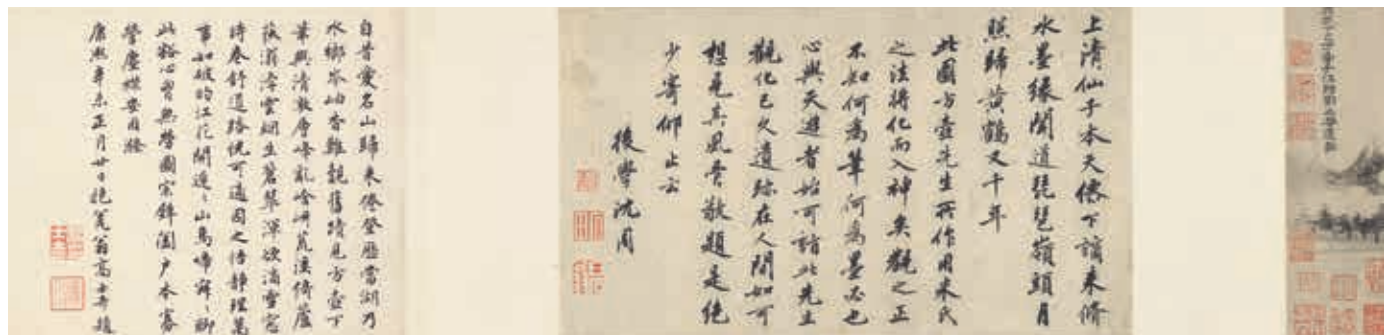 上清仙子本天儔下謫來脩
水墨緣聞道琵琶嶺頭月
照歸黃鶴又千年
此圖方壺先生所作用米氏
之法將化而入神矣觀之正
不知何爲筆何爲墨必也
心與天遊者始可詣此先生
觀化已久遺跡在人間如可
想見其風旨敬題是絕
少寄仰止云
後學沈周
自昔愛名山歸來倦登歷當湖乃
水鄉岑岫杳難覿舊蹟見方壺下
筆興清敵層峰亂岭岈荒溪倚蘆
荻滃浡雲絪生蒼翠渾欲滴雲容
時卷舒道路恍可適因之悟靜理萬
事如破的江花開邊邊山鳥啼寂寂聊
此豁心胷無勞圖宗錡闔戶本寡
營塵襟安用滌
康熙辛未正月廿日抱甕翁高士奇題